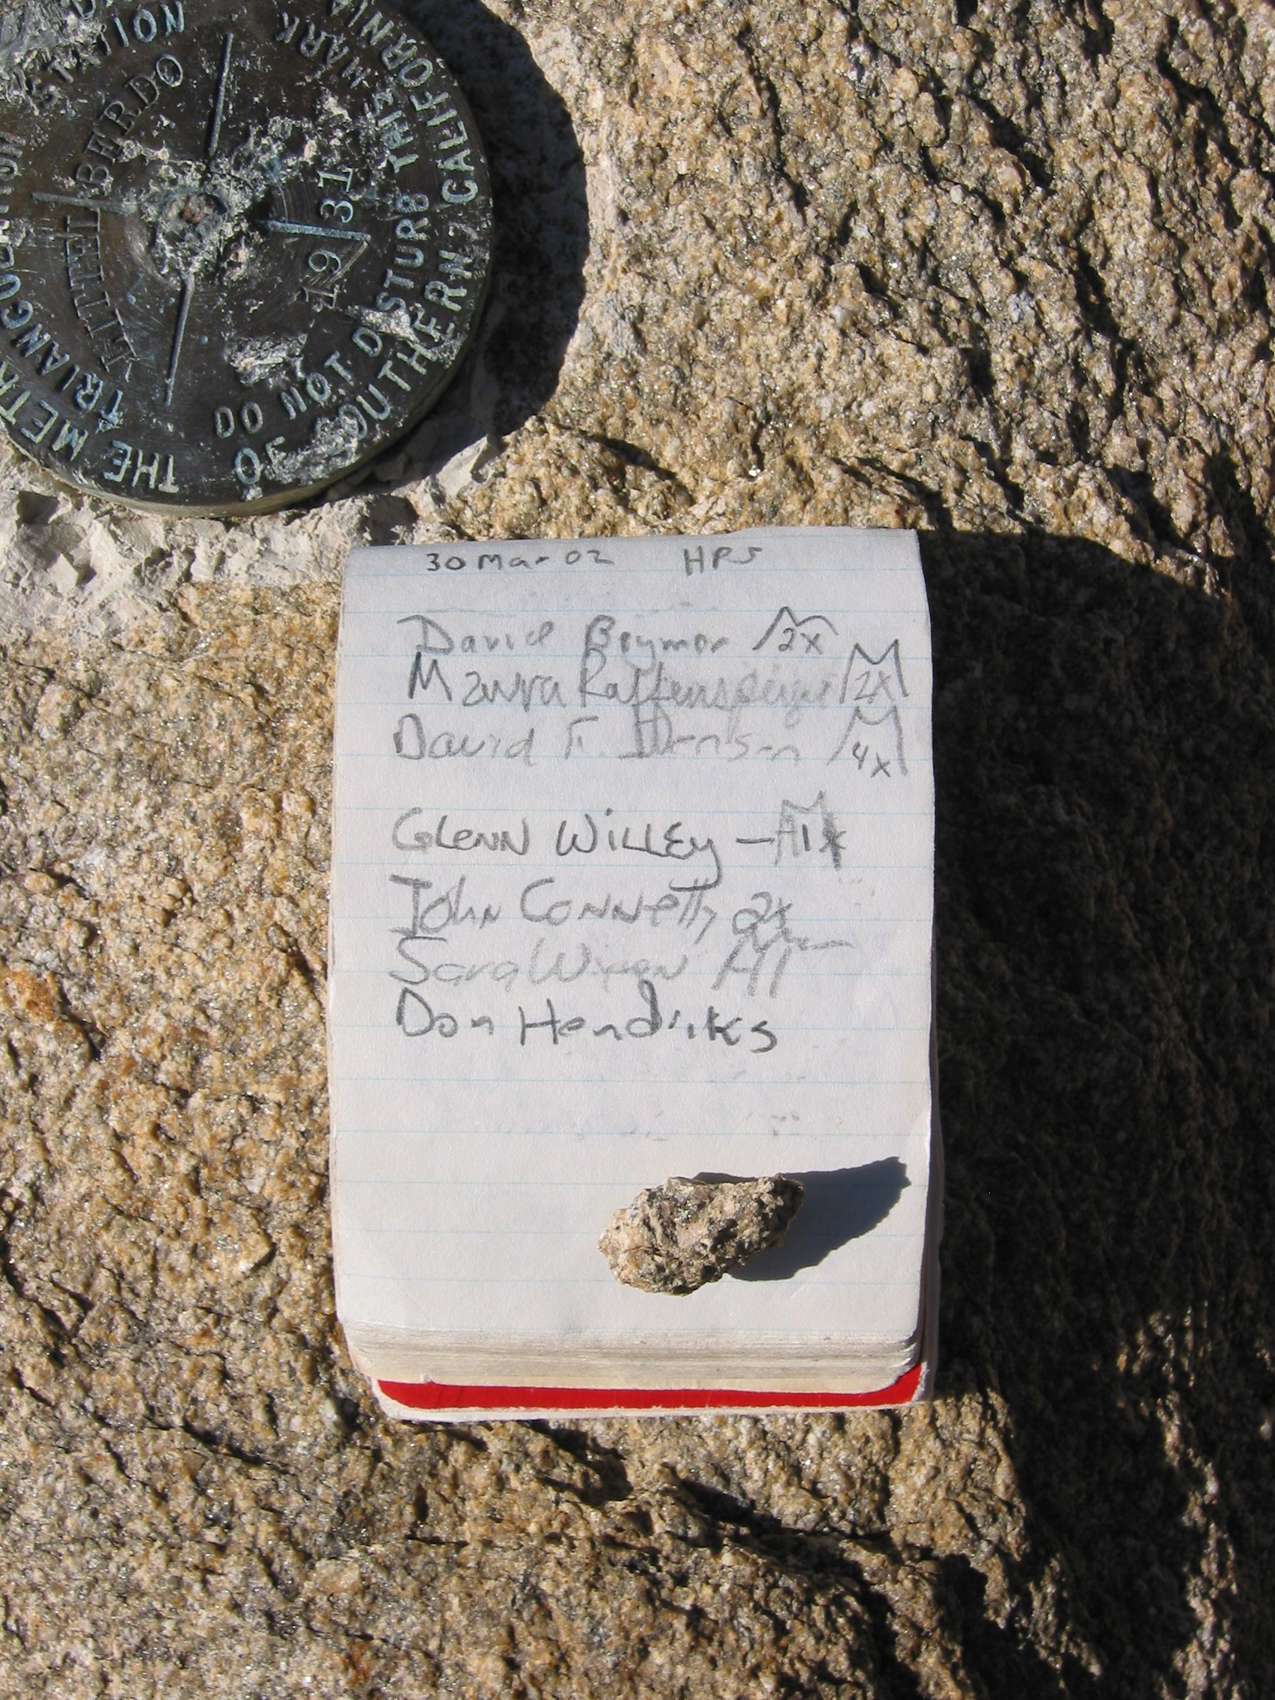 THE METR
OF SOUTHERN CALIFORNI
TRIANGULATION STATION
DO NOT DISTURB THIS MARK
LITTLE BERDO
1931
30 Mar 02 HPS
David Beymer 2x
Maura Raffensperger 2x
David F. 4x
GLENN WILLEY - 1x
John Connelly 2x
Sara Wyrens
Don Hendricks